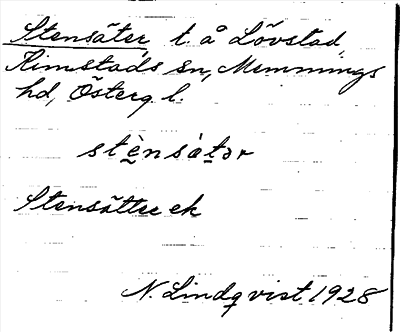 Stensäter t å Lövstad,
Kimstads sn, Memmings
hd, Österg. l.
stènsàtər
Stensätter ek
N. Lindqvist 1928